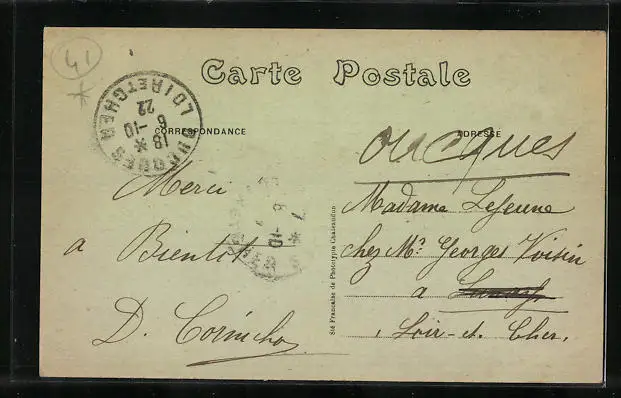 41
Carte Postale
CORRESPONDANCE
ADRESSE
OUCQUES
LOIR ET CHER
18 *
6 -10
22
Merci
a Bientot
D. Cornicho
Oucques
Madame Lejeune
chez Mr Georges Voisin
a
Loir-et. Cher.
Sté Française de Phototypie Chateaudun